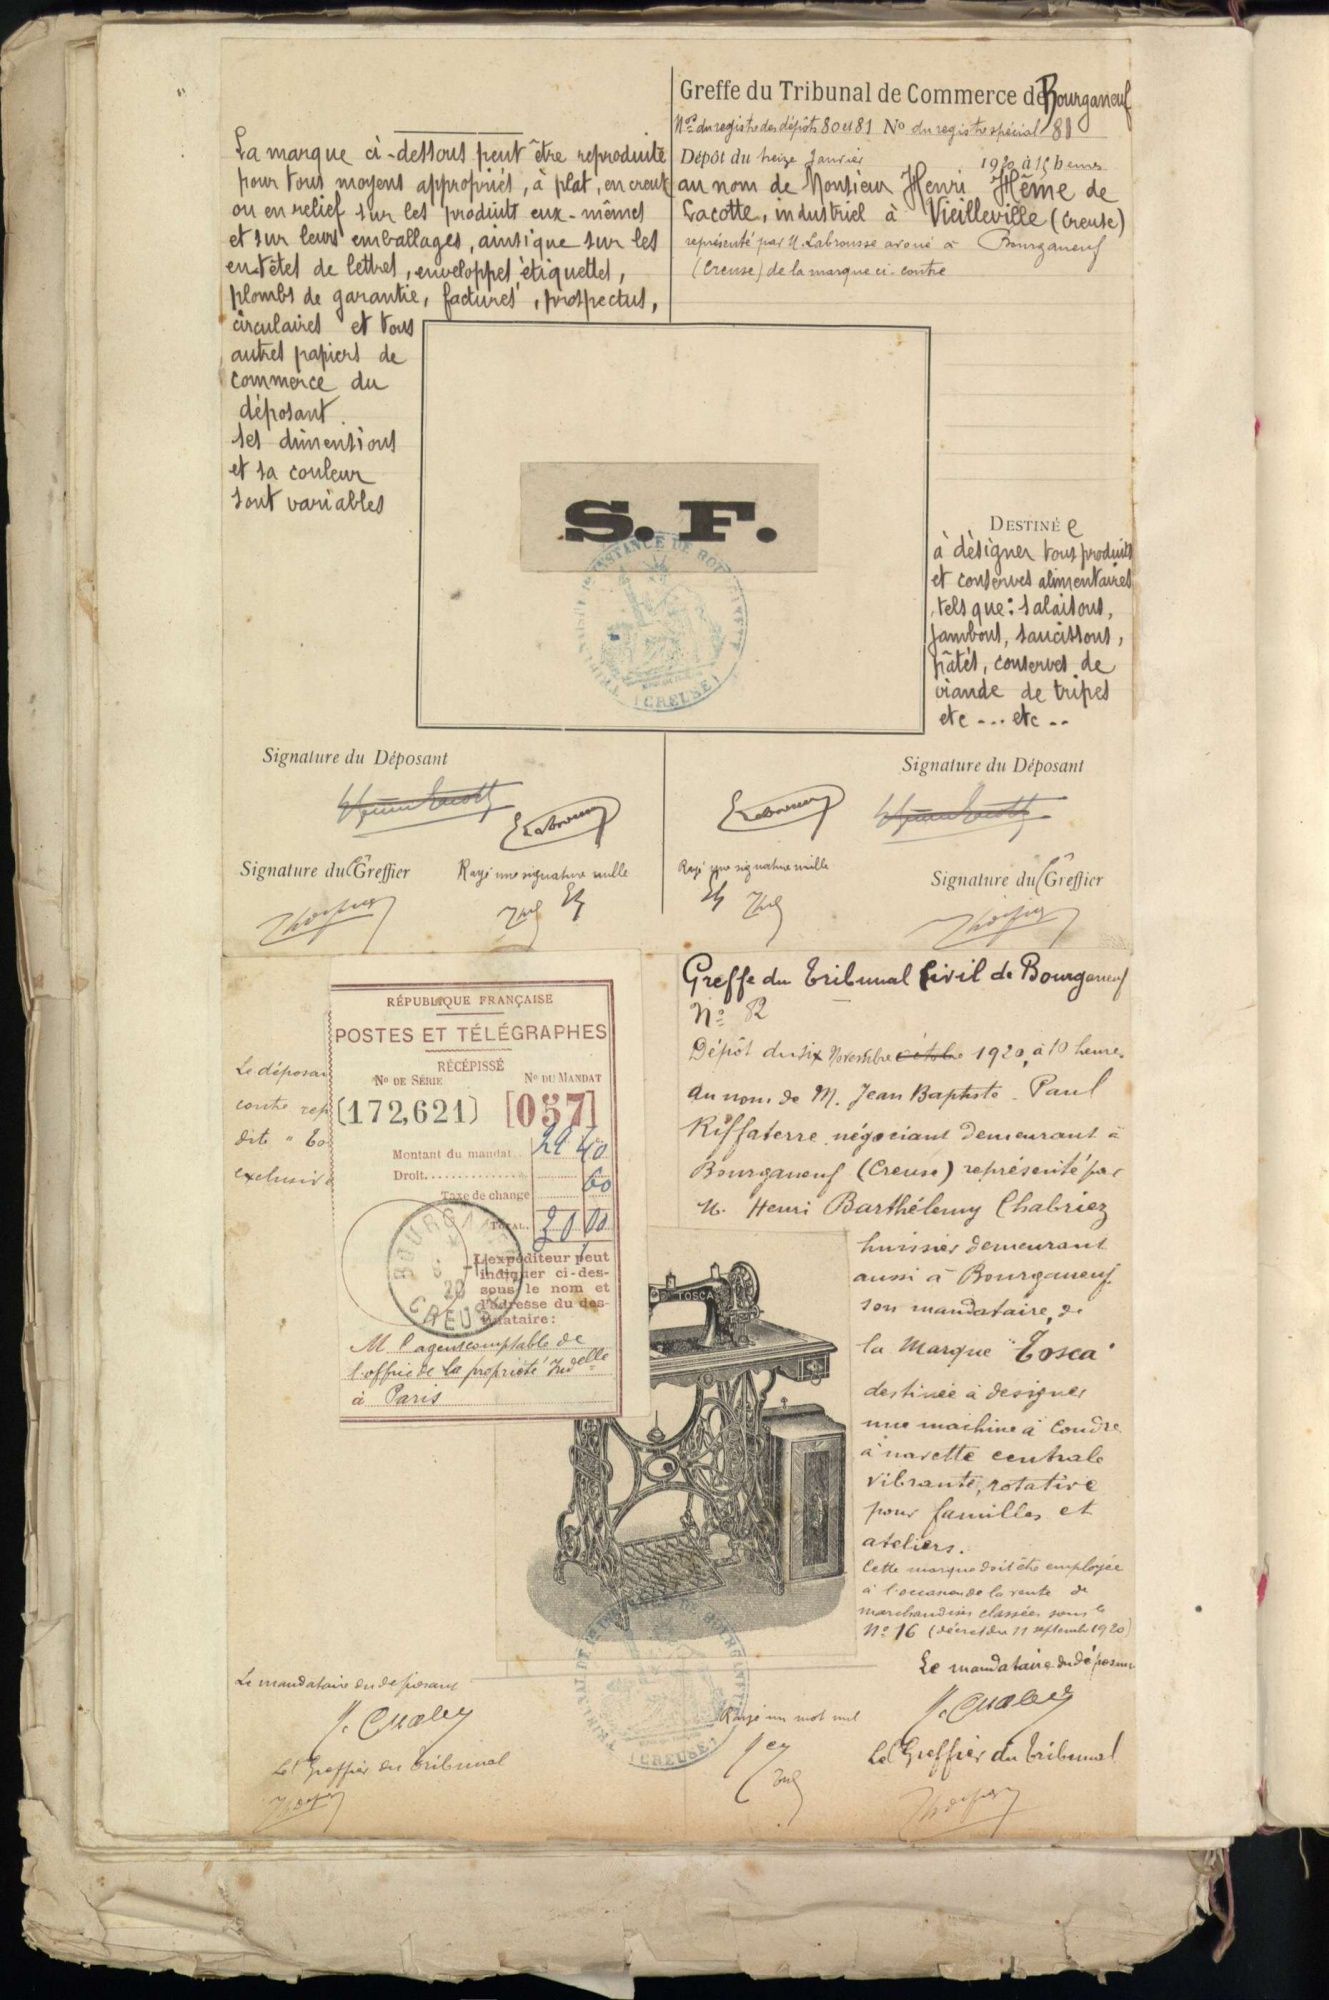 Greffe du Tribunal de Commerce de Bourganeuf
Nos du registre des dépôts 80 et 81 No du registre spécial 81
Dépôt du treize Janvier 1920 à 15 heures
au nom de Monsieur Henri Hême de
Lacotte, industriel à Vieilleville (Creuse)
représenté par M. Labrousse avoué à Bourganeuf
(Creuse) de la marque ci-contre
La marque ci-dessous peut être reproduite
pour tous moyens appropriés, à plat, en creux
ou en relief sur les produits eux-mêmes
et sur leurs emballages, ainsi que sur les
en-têtes de lettres, enveloppes, étiquettes,
plombs de garantie, factures, prospectus,
circulaires et tous
autres papiers de
commerce du
déposant
ses dimensions
et sa couleur
sont variables
S. F.
TRIBUNAL DE 1re INSTANCE DE BOURGANEUF
(CREUSE)
DESTINÉe
à désigner tous produits
et conserves alimentaires
tels que: salaisons,
jambons, saucissons,
pâtés, conserves de
viande de tripes
etc ... etc ..
Signature du Déposant
Signature du Déposant
Signature du Cis Greffier
Rayé une signature nulle
Rayé une signature nulle
Signature du Cis Greffier
Greffe du Tribunal Civil de Bourganeuf
No 82
Dépôt du six Novembre octobre 1920, à 10 heures
au nom de M. Jean Baptiste Paul
Riffaterre négociant demeurant à
Bourganeuf (Creuse) représenté par
M. Henri Barthélemy Chabriez
huissier demeurant
aussi à Bourganeuf
son mandataire, de
la Marque "Tosca"
destinée à designer
une machine à coudre
à navette centrale
vibrante, rotative
pour familles et
ateliers.
Cette marque doit être employée
à l'occasion de la vente de
marchandises classées sous le
No 16 (décret du 11 septembre 1920)
Le déposan
contre rep
dite "To
exclusive
RÉPUBLIQUE FRANÇAISE
POSTES ET TÉLÉGRAPHES
RÉCÉPISSÉ
No DE SÉRIE No DU MANDAT
(172,621) [057]
Montant du mandat.. 29 40
Droit................ 60
Taxe de change
TOTAL. 30 00
L'expéditeur peut
indiquer ci-des-
sous le nom et
l'adresse du des-
tinataire:
M l'agent comptable de
l'office de la propriété Indelle
à Paris
BOURGANEUF
20
CREUSE
TOSCA
Le mandataire du déposant
Le mandataire du déposant
Rayé un mot nul
Le Cis Greffier du Tribunal
Le Cis Greffier du Tribunal
TRIBUNAL DE 1re INSTANCE DE BOURGANEUF
(CREUSE)